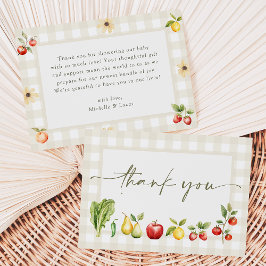 Thank you for showering our baby
with so much love! Your thoughtful gift
and support mean the world to us as
we prepare for our newest bundle of joy.
We're grateful to have you in our lives!
with love,
Michelle & Lucas
thank you